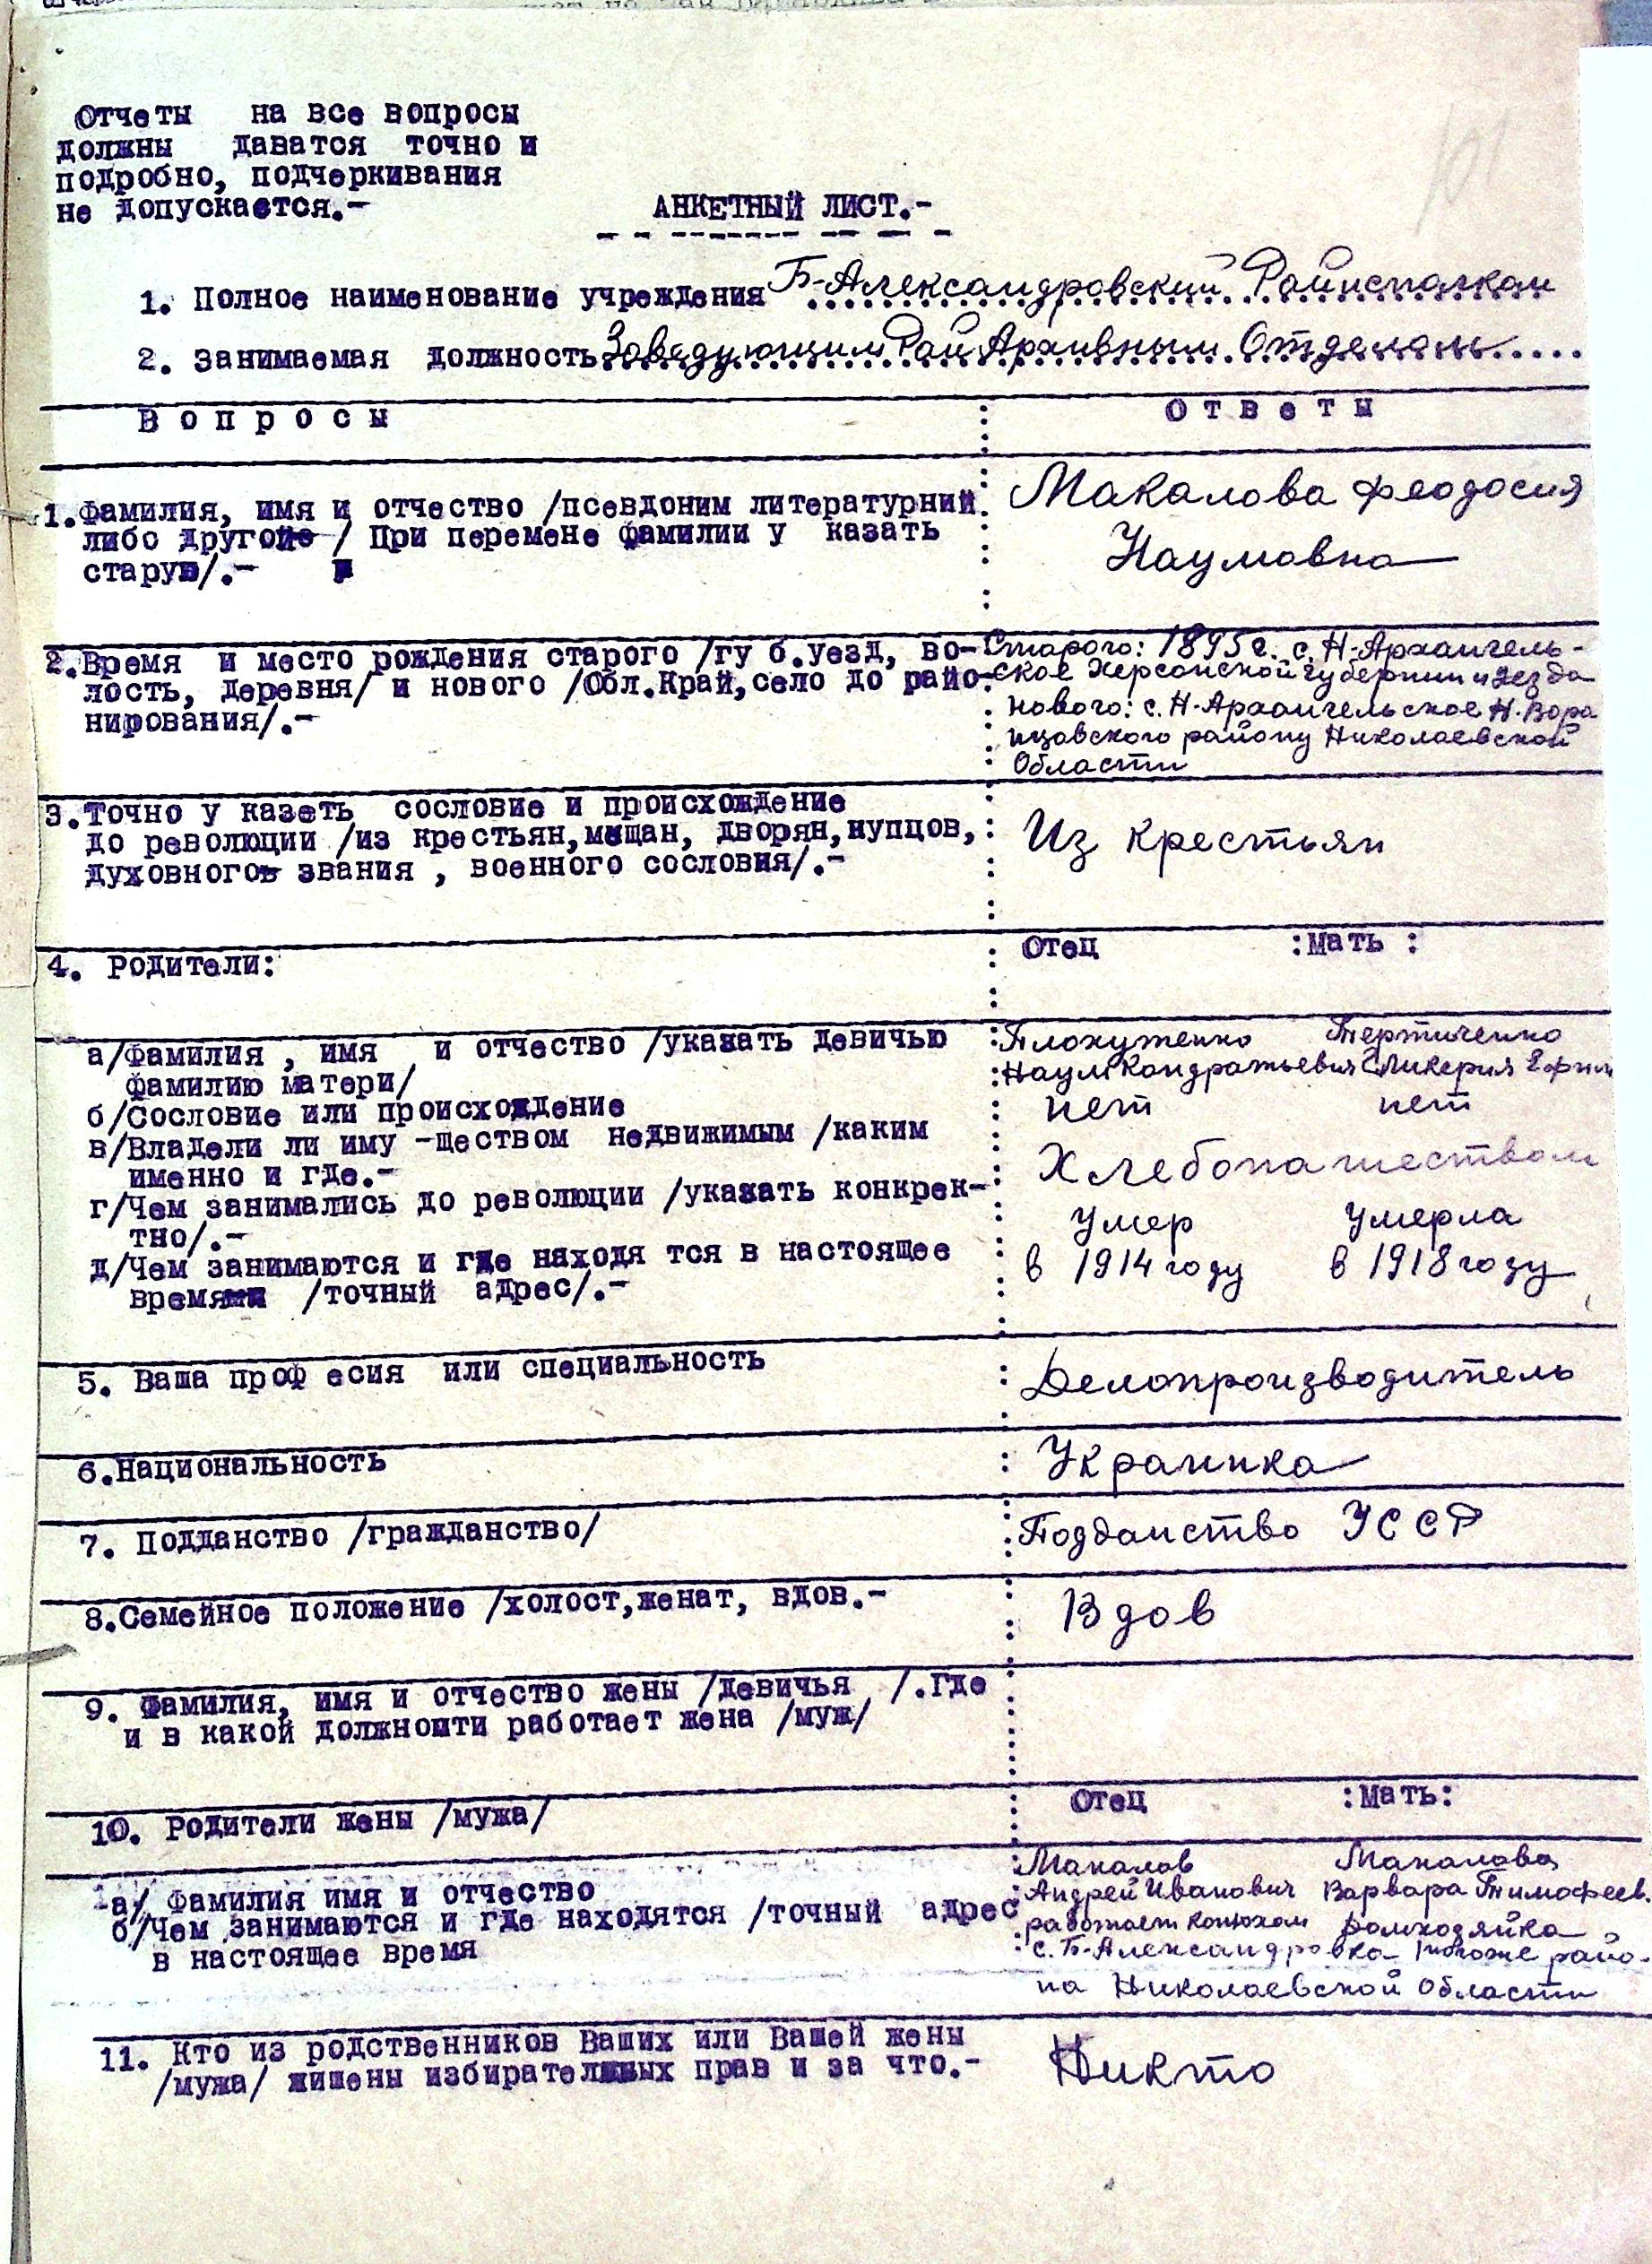 Отчеты на все вопросы
должны даватся точно и
подробно, подчеркивания
не допускается.-
АНКЕТНЫЙ ЛИСТ.-
1. Полное наименование учреждения Б-Александровский Райисполком
2. Занимаемая должность Заведующим Рай Архивным Отделом
Вопросы Ответы
1.Фамилия, имя и отчество /псевдоним литературний Макалова Феодосия
либо другой / При перемене фамилии у казать Наумовна
старую/.-
2.Время и место рождения старого /гу б.уезд, во- Старого: 1895 г. с. Н-Архангель-
лость, деревня/ и нового /Обл.Край,село до райо- ское Херсонской губернии и уезда
нирования/.- нового: с. Н-Архангельское Н. Вора
нцовского району Николаевской
Области
3.Точно у казеть сословие и происхождение
до революции /из крестьян,мещан, дворян,купцов, Из крестьян
духовного звания , военного сословия/.-
4. Родители: Отец :Мать :
а/Фамилия , имя и отчество /указать девичью Плохутенко Тертиченко
фамилию матери/ Наум Кондратьевич Гликерия Ефим
б/Сословие или происхождение нет нет
в/Владели ли иму -ществом недвижимым /каким
именно и где.- Хлебопашеством
г/Чем занимались до революции /указать конкрек-
тно/.- Умер умерла
д/Чем занимаются и где находя тся в настоящее в 1914 году в 1918 году
время /точный адрес/.-
5. Ваша проф есия или специальность Делопроизводитель
6.Национальность Украинка
7. Подданство /гражданство/ Подданство УССР
8.Семейное положение /холост,женат, вдов.- Вдов
9. Фамилия, имя и отчество жены /девичья /.Где
и в какой должности работает жена /муж/
10. Родители жены /мужа/ Отец :Мать:
а/ Фамилия имя и отчество Макалов Макалова
б/Чем занимаются и где находятся /точный адрес Андрей Иванович Варвара Тимофеев.
в настоящее время работает конюхом домхозяйка
с. Б-Александровка того же райо-
на Николаевской Области
11. Кто из родственников Ваших или Вашей жены
/мужа/ лишены избирательных прав и за что.- Никто